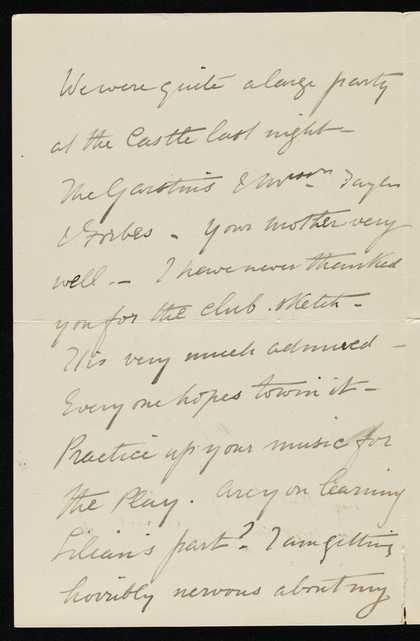 We were quite a large party
at the Castle last night -
The Garstins & Mr
& Forbes - Your mother very
well - I have never thanked
you for the club sketch -
It is very much admired -
Every one hopes to win it -
Practice up your music for
the Play. Are you learning
Lilian's part? - I am getting
horribly nervous about my